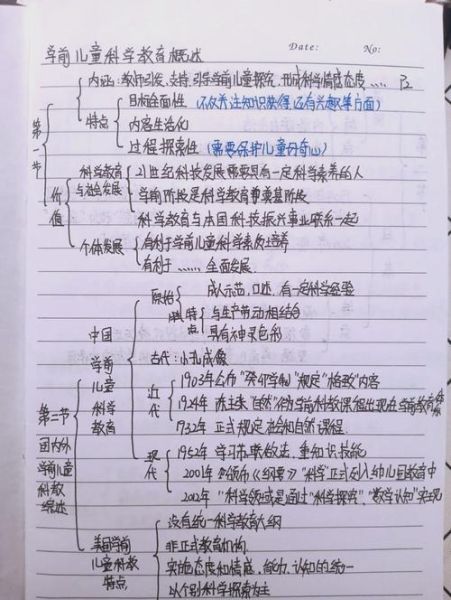 学前儿童科学教育概述
Date:
No:
第一节
内涵：教师引发、支持、引导学前儿童探究，形成科学情感态度……
特点
目标全面性（不仅关注知识获得，还有兴趣等方面）
内容生活化
过程探索性（需要保护儿童好奇心）
价值
科学教育与社会发展
21世纪科技发展需要具有一定科学素养的人
学前阶段是科学教育奠基阶段
科学教育与本国科技振兴事业联系一起
个体发展
有利于学前儿童科学素质培养
有利于……全面发展
第二节 国内外学前儿童科教综述
中国学前儿童科学教育
原始
成人示范，口述，有一定科学经验
特点
与生产劳动相结合
具有神灵色彩
古代：小孔成像
近代
1903年公布“癸卯学制”规定“格致”内容
“自然”作为学前科教课程出现在学前教育
1932年 正式规定
现代
1952年 学习苏联教法，重知识技能
2001年 颁布《纲要》“科学”正式列入幼儿园教育中
2012年 “科学领域是通过“科学探究”、“数学认知”实现
美国学前儿童科教特点
没有统一科学教育大纲
非正式教育机构
实施态度和情感、能力、认知的统一
以个别科学探索为主